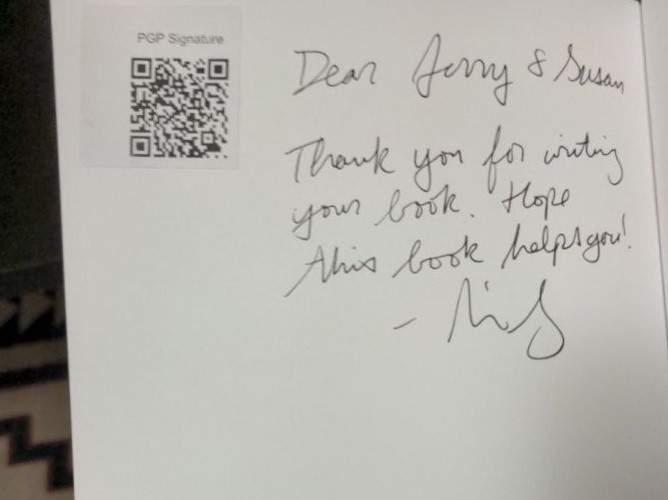 PGP Signature
Dear Jerry & Susan
Thank you for writing
your book. Hope
this book helps you!